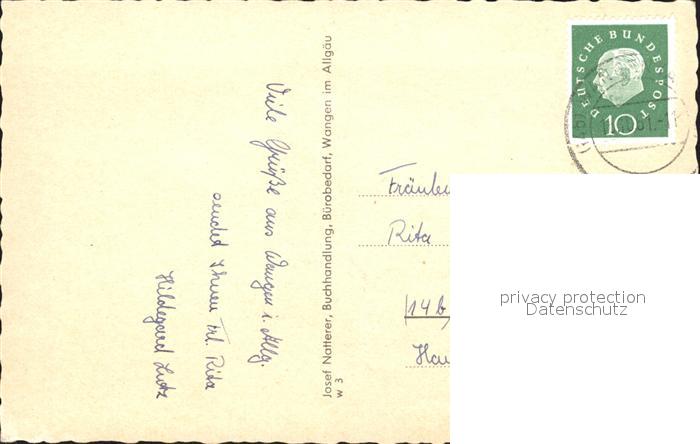 Viele Grüße aus Wangen i. Allg.
sendet Ihnen Frl. Rita
Hildegard Lutz
Josef Natterer, Buchhandlung, Bürobedarf, Wangen im Allgäu
w 3
DEUTSCHE BUNDESPOST
10
Rita
(14b)
privacy protection
Datenschutz